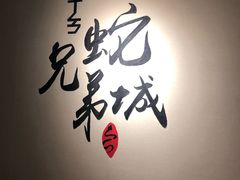 兄弟
蛇城